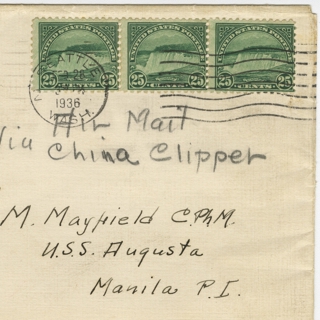 UNITED STATES POSTAGE UNITED STATES POSTAGE UNITED STATES POSTAGE
25 CENTS 25 25 CENTS 25 25 CENTS 25
SEATTLE
1936
WASH.
Via Air Mail
China Clipper
M. Mayfield C.Ph.M.
U.S.S. Augusta
Manila P.I.